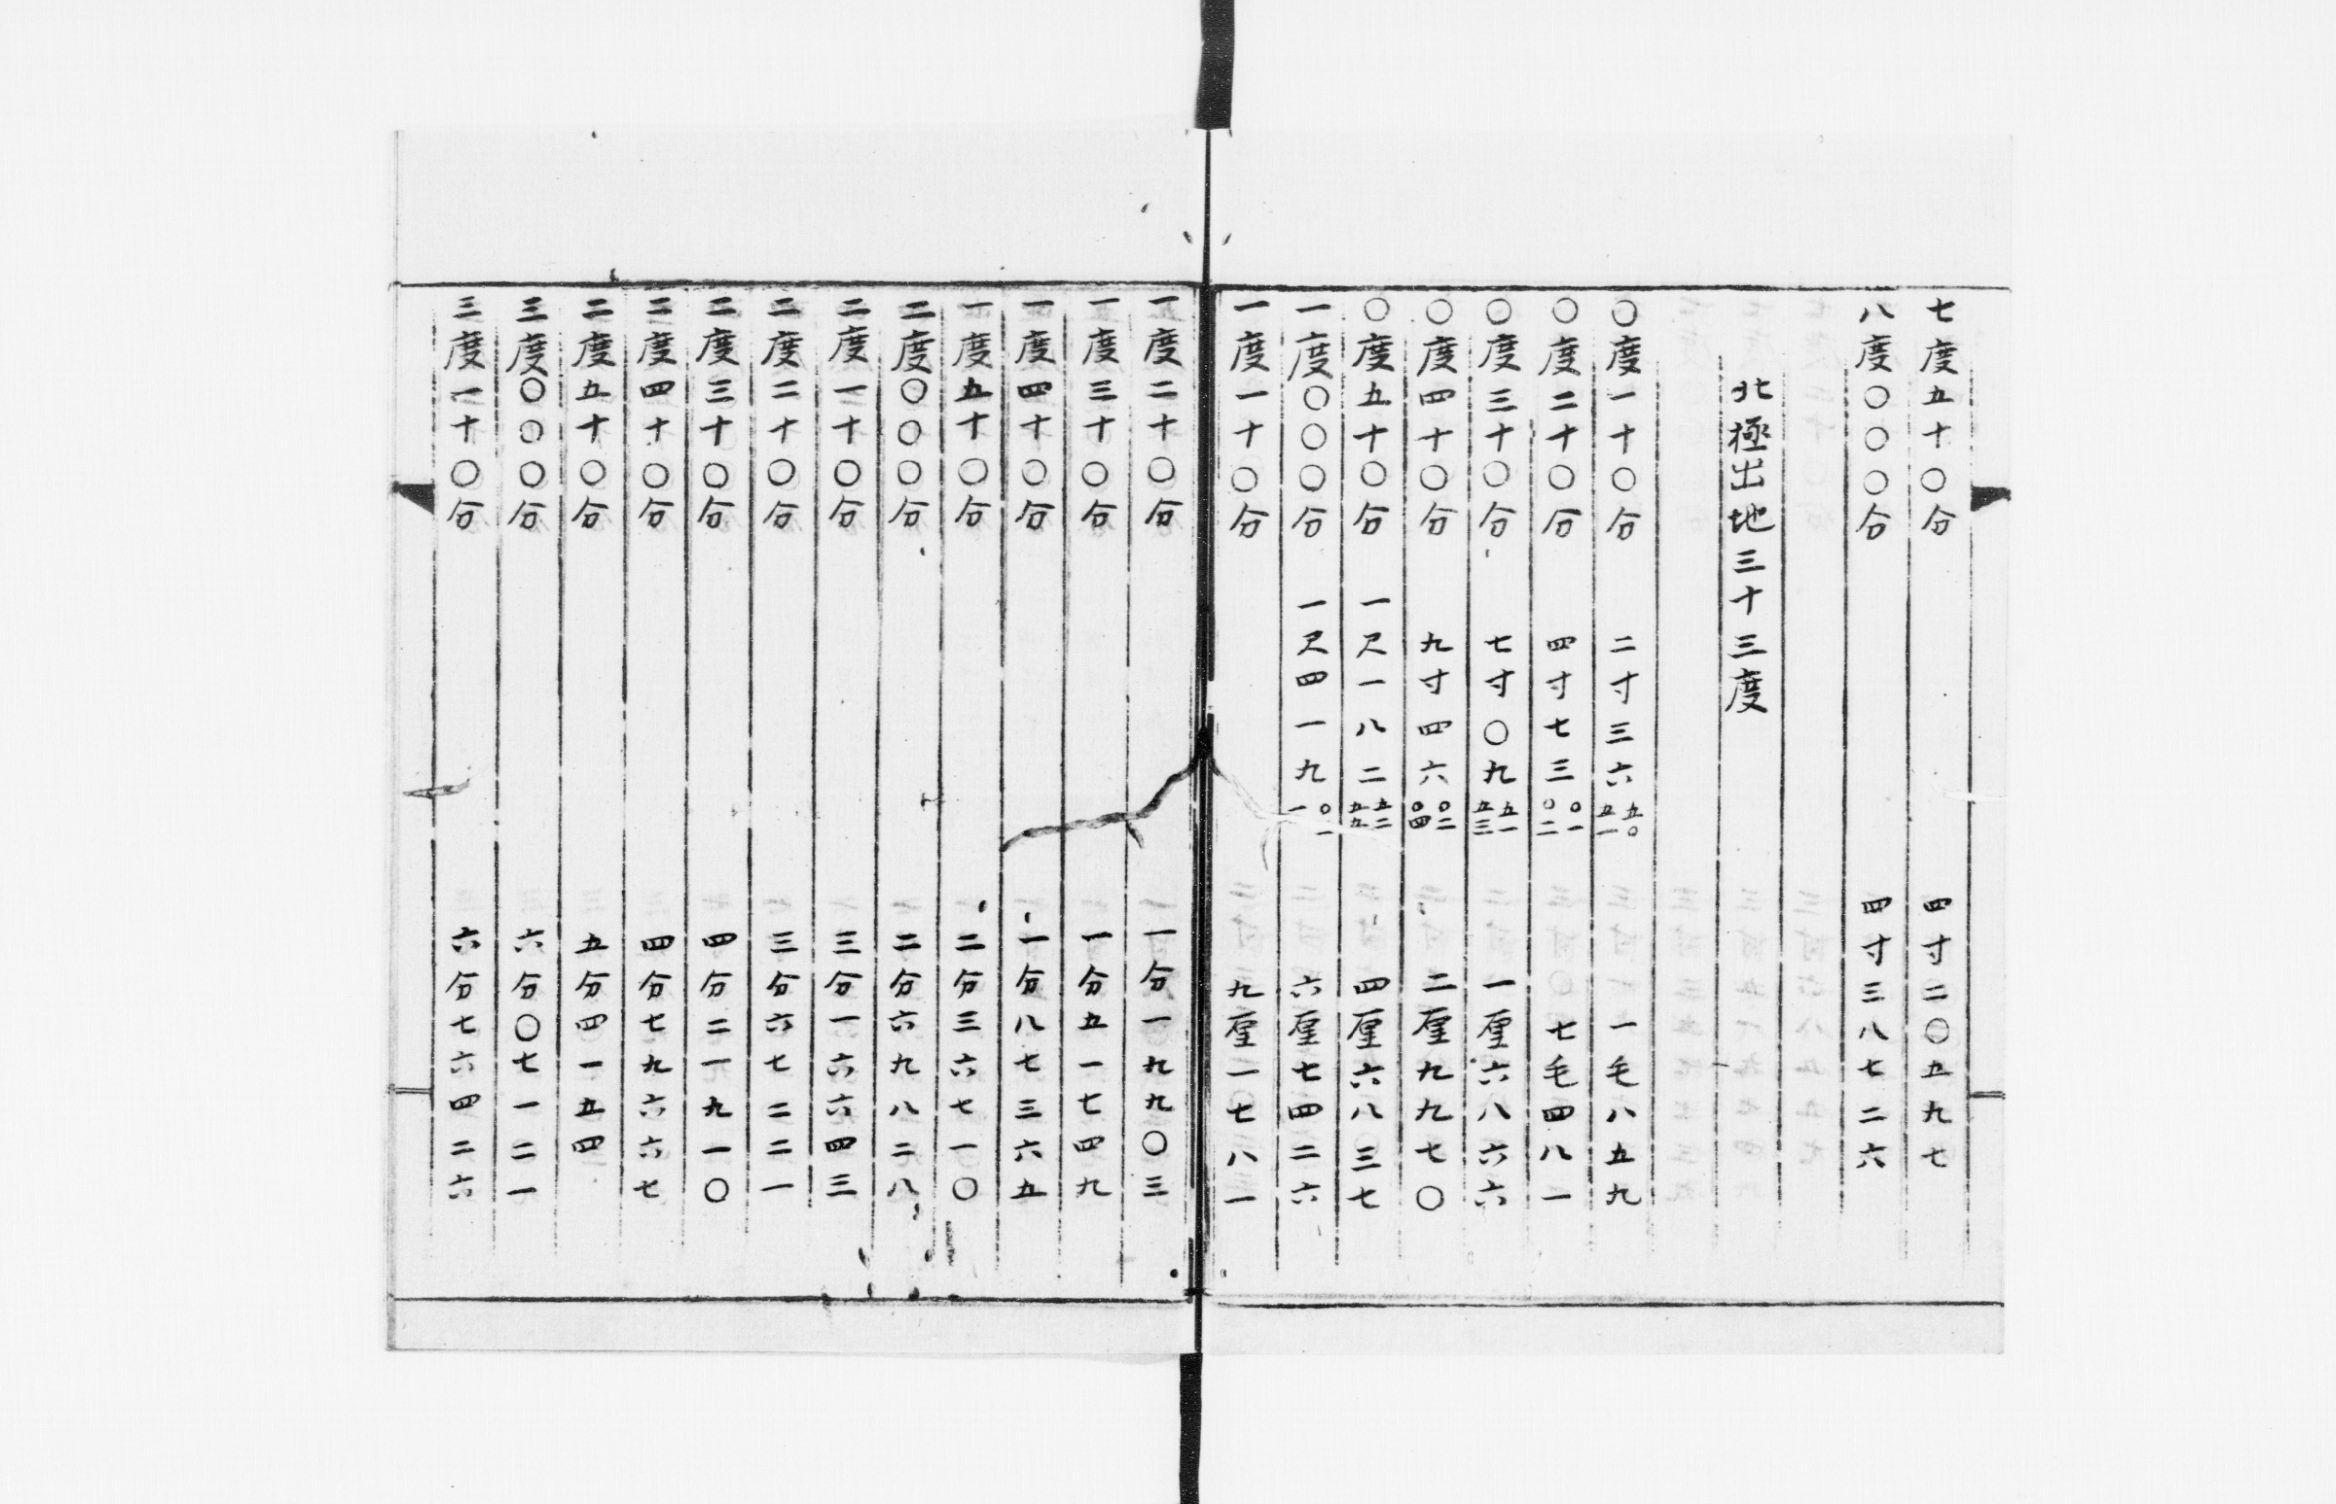 七度五十〇分 四寸二〇五九七
八度〇〇〇分 四寸三八七二六
北極出地三十三度
〇度一十〇分 二寸三六五〇五一 一毛八五九
〇度二十〇分 四寸七三〇一〇二 七毛四八一
〇度三十〇分 七寸〇九五一五三 一厘六八六六
〇度四十〇分 九寸四六〇二〇四 二厘九九七〇
〇度五十〇分 一尺一八二五二五五 四厘六八三七
一度〇〇〇分 一尺四一九〇一一 六厘七四二六
一度一十〇分 九厘一七八一
一度二十〇分 一分一九九〇三
一度三十〇分 一分五一七四九
一度四十〇分 一分八七三六五
一度五十〇分 二分三六七一〇
二度〇〇〇分 二分六九八二八
二度一十〇分 三分一六六四三
二度二十〇分 三分六七二二一
二度三十〇分 四分二一九一〇
二度四十〇分 四分七九六六七
二度五十〇分 五分四一五四
三度〇〇〇分 六分〇七一二一
三度一十〇分 六分七六四二六